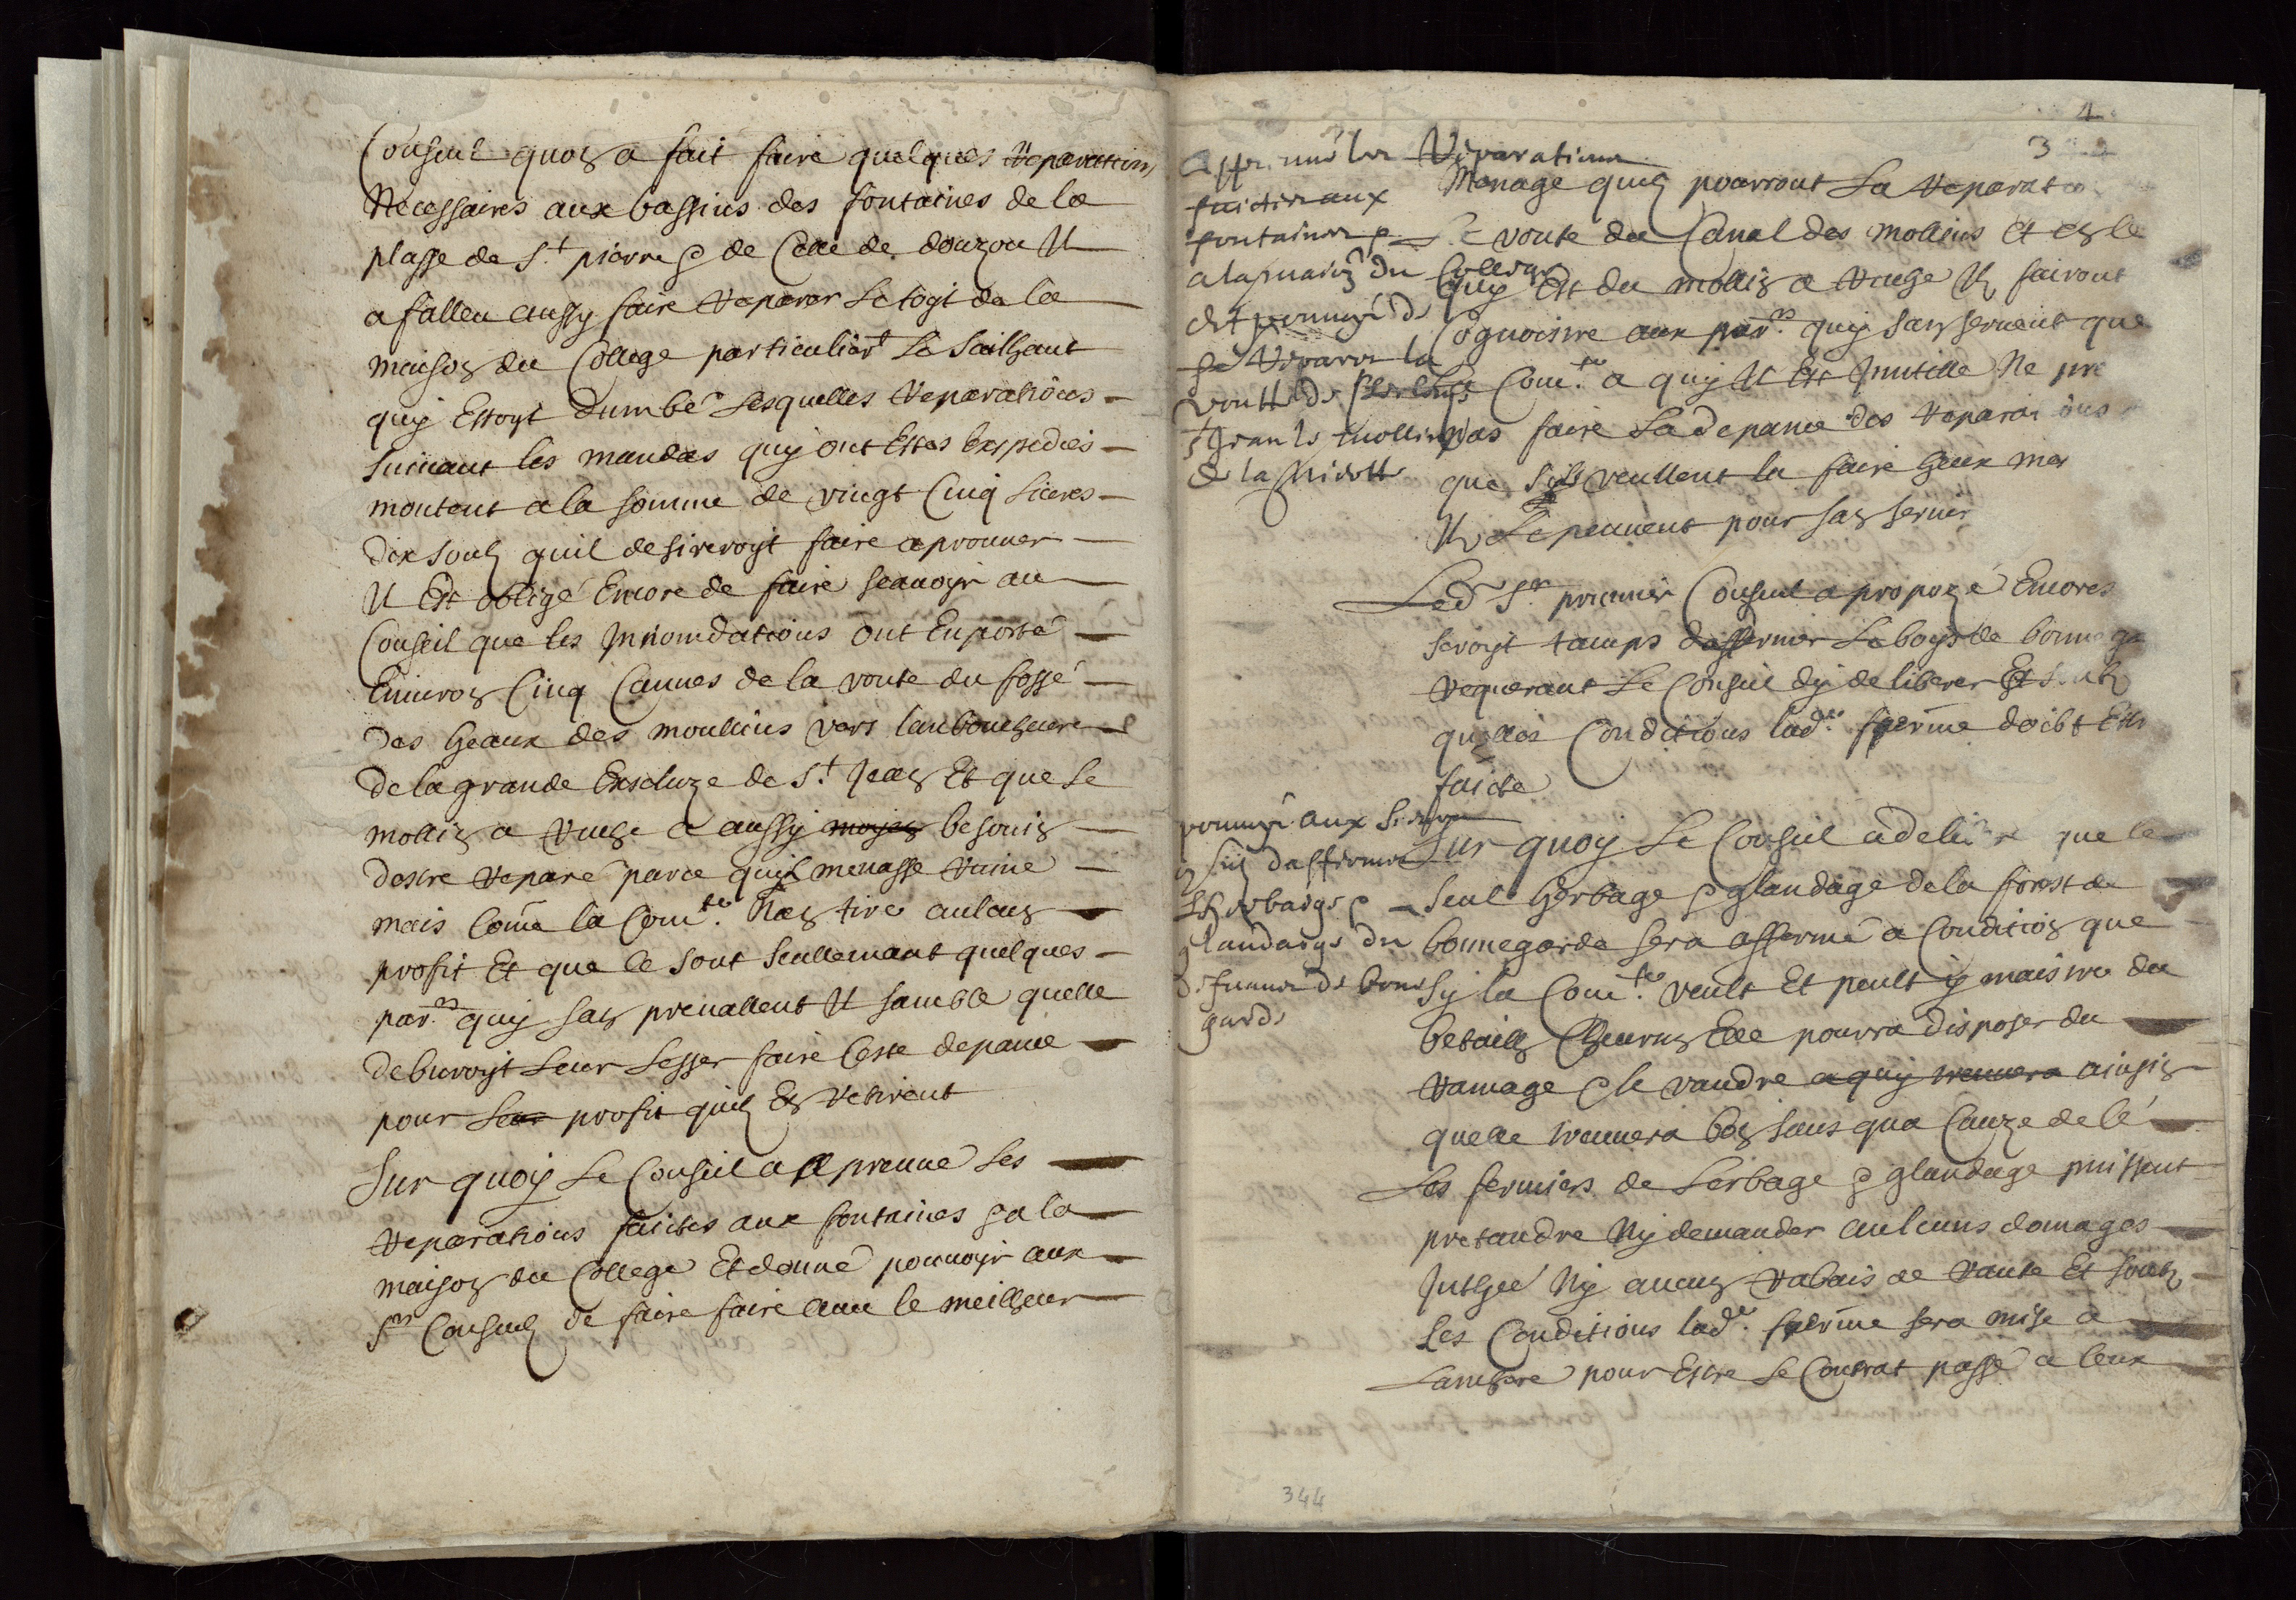 Conseul quon a fait faire quelques reparations
Necessaires aux bassins des fontaines de la
plasse de St pierre & de Celle de douzou Il
a falleu aussy faire reparer Le togt de la
maison du College particulièrt Le Sailhant
quy Estoyt tumbé Lesquelles reparations
suivant les mandas quy ont Estes Expediés
montent a la somme de vingt Cinq Livres
dix soulz quil desireroyt faire aprouver
Il Est obligé Encore de faire scavoyr au
Conseil que les Innondations ont Enporté
Environ Cinq Cannes de la voute du fossé
des heaux des moullins vers lanbouchure
de la grande Excluze de St Jean Et que Le
mollin a vuihe a aussy moyen besouin
destre reparé parce quil menasse ruine
mais Come la Comté Nen tire auleun
profit Et que Ce sont seullemant quelques
parrs quy san prevallent Il samble quelle
deburoyt Leur Lesser faire Ceste depance
pour Leur profit quilz En retirent
Sur quoy Le Conseil a aprenné Les
reparations faictes aux fontaines & a la
maison du College Et donné pouvoyr aux
Srs Consulz de faire faire avec le meilheur
4
3
Aprouvé les Reparations
faictes aux
fontaines &
a la maison du College
Et pouvoyr de
fe Reparer la
voutte de
grands mollins
de la
Menage quilz pourront La reparatio
voute du Canal des mollins Et En le
quy Est du mollin a vuihe Ilz fairont
Cognoistre aux parrs quy san servent que
La Comté a quy Il Est Inutille Ne pre
pas faire La depance des reparations
que Silz veullent la faire heux mes
Ilz Le peuvent pour san servir
Led Sr premier Consul a propozé Encores
seroyt tamps dafermer Le boys de bonnega
requerant Le Conseil dy deliberer Et Soubz
quelles Conditions ladte ferme doibt Est
faicte
pouvoyr aux Sieurs
daffermer
Lherbaige &
glandaige du
de bone
garde
Sur quoy Le Conseil a deliberé que le
seul herbage & glandage de la forest de
bonnegarde sera affermé a Condition que
Sy la Comté veult Et peult y maistre du
betailh Chevrun Elle pourra disposer du
ramage & le vandre a quy trouvera ainsin
quelle trouvera bon sans qua Cauze de Cé
Les fermiers de Lerbage & glandage puissent
pretandre Ny demander aulcuns domages
Inthéé Ny aucun rabais de rante Et soubz
Les Conditions ladte ferme sera mise a
Lanchere pour Estre Le Contrat passé a Ceux
344